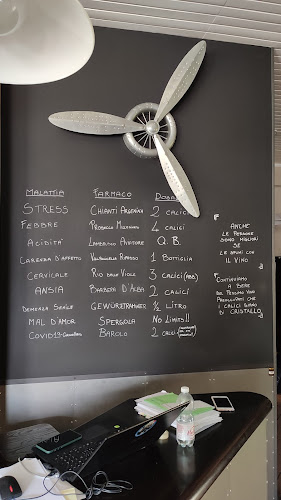 MALATTIA FARMACO DOSAGGIO
STRESS CHIANTI 2 CALICI
FEBBRE PROSECCO 4 CALICI
ACIDITA' LAMBRUSCO Q.B.
CARENZA D'AFFETTO VALPOLICELLA RIPASSO 1 BOTTIGLIA
CERVICALE RIO DELLE VIOLE 3 CALICI
ANSIA BARBERA D'ALBA 2 CALICI
DEMENZA SENILE GEWÜRZTRAMINER ½ LITRO
MAL D'AMOR SPERGOLA NO LIMITS!!
COVID19 BAROLO 2 CALICI
"ANCHE
LE PERSONE
SONO MIGLIORI
SE
LE ANNAFFI CON
IL VINO"
"CONTINUIAMO
A BERE
CHE
I CALICI SIANO
DI CRISTALLO"